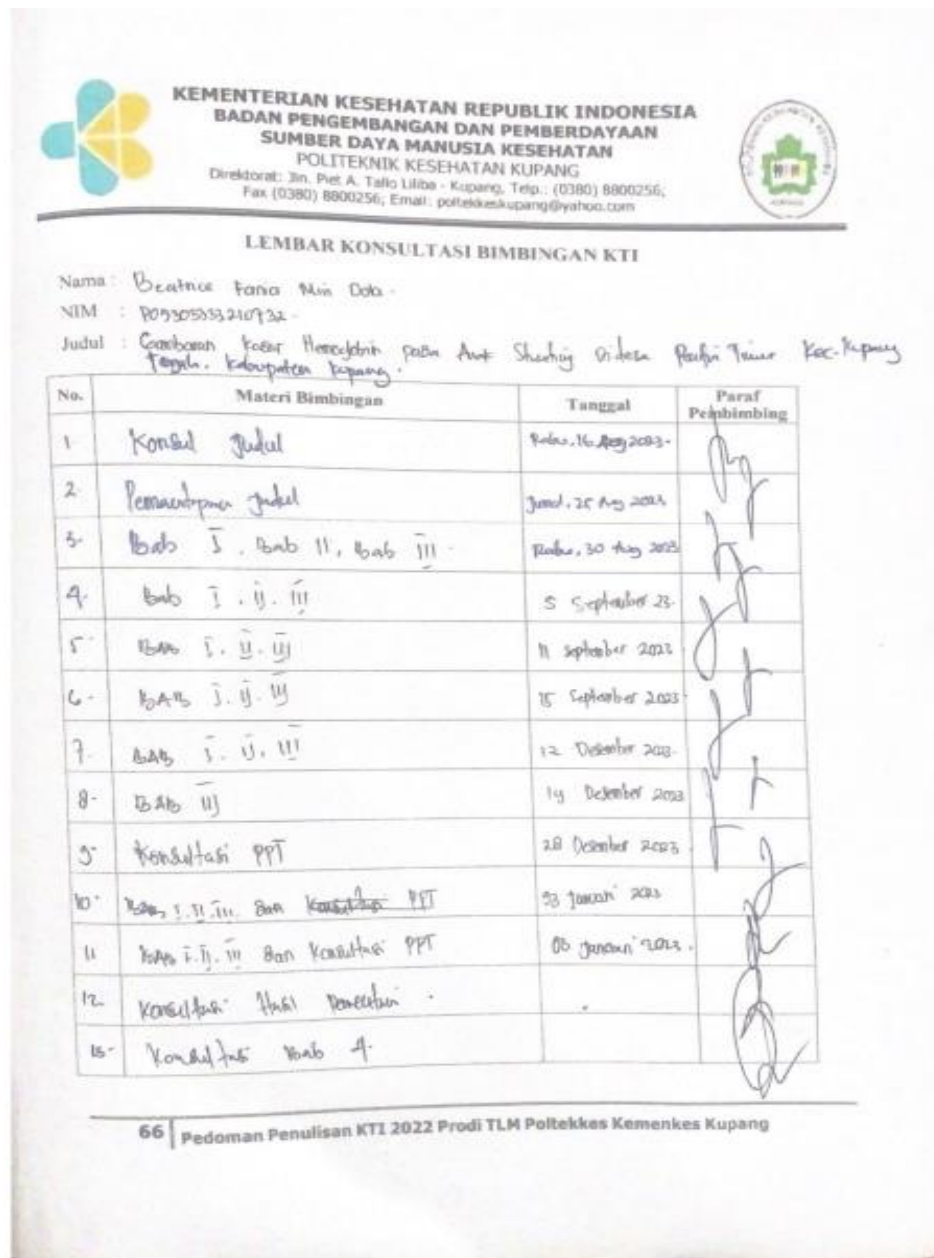 KEMENTERIAN KESEHATAN REPUBLIK INDONESIA
BADAN PENGEMBANGAN DAN PEMBERDAYAAN
SUMBER DAYA MANUSIA KESEHATAN
POLITEKNIK KESEHATAN KUPANG
Direktorat: Jln. Piet A. Tallo Liliba - Kupang, Telp.: (0380) 8800256;
Fax (0380) 8800256; Email: poltekkeskupang@yahoo.com
LEMBAR KONSULTASI BIMBINGAN KTI
Nama : Beatrice Faria Min
NIM : PO5305333210732
Judul : Gambaran Kadar Hemoglobin pada Anak Stunting Di desa Timur Kec. Kupang
Tengah. Kabupaten Kupang.
No. Materi Bimbingan Tanggal Paraf Pembimbing
1 Konsul Judul Rabu, 16 Aug 2023
2. Pemantapan Judul Jumat, 25 Aug 2023
3. Bab I, Bab II, Bab III Rabu, 30 Aug 2023
4. Bab I. II. III 5 September 23
5 BAB I. II. III 11 September 2023
6. BAB I. II. III 15 September 2023
7. BAB I. II. III 12 Desember 2023
8. BAB III 14 Desember 2023
9. Konsultasi PPT 28 Desember 2023
10. BAB I. II. III dan Konsultasi PPT Januari 2023
11 BAB I. II. III dan Konsultasi PPT Januari 2023
12. Konsultasi Hasil Penelitian
13. Konsultasi Bab 4
66 | Pedoman Penulisan KTI 2022 Prodi TLM Poltekkes Kemenkes Kupang